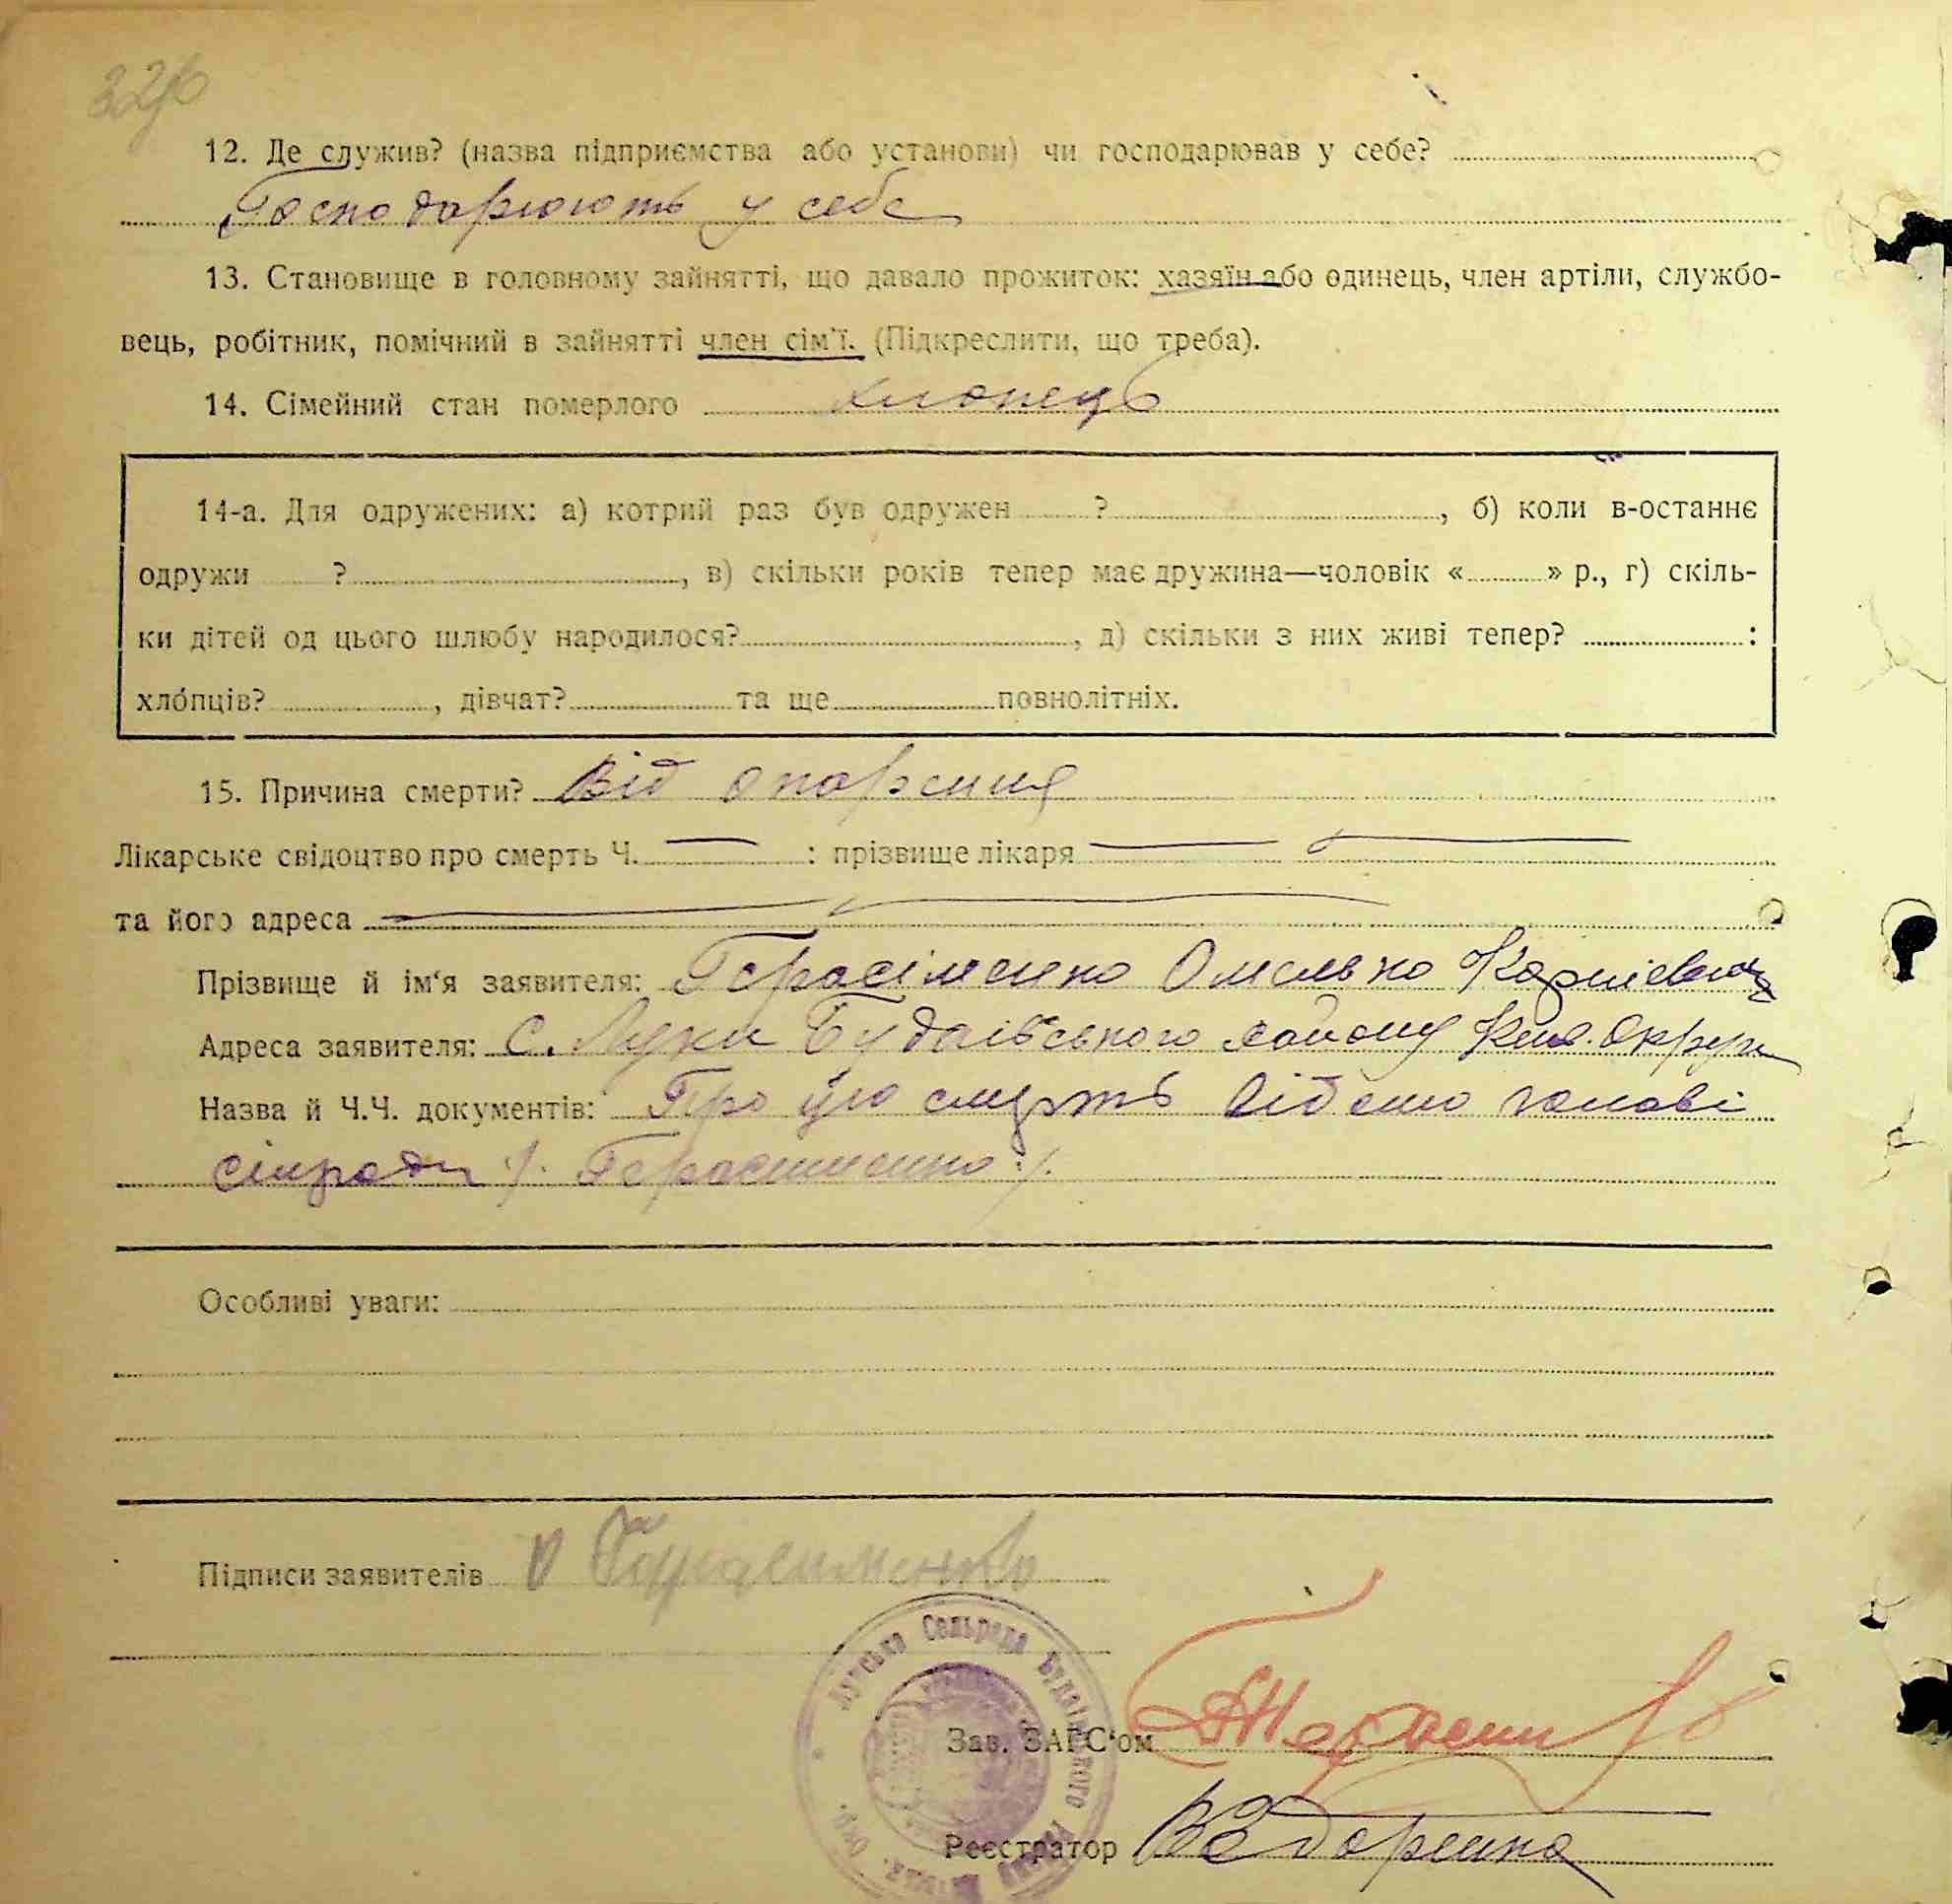 12. Де служив? (назва підприємства або установи) чи господарював у себе?
Господарюють у себе
13. Становище в головному зайнятті, що давало прожиток: хазяїн або одинець, член артіли, службо-
вець, робітник, помічний в зайнятті член сім'ї. (Підкреслити, що треба).
14. Сімейний стан померлого хлопець
14-а. Для одружених: а) котрий раз був одружен ?, б) коли в-останнє
одружи ?, в) скільки років тепер має дружина—чоловік « » р., г) скіль-
ки дітей од цього шлюбу народилося?, д) скільки з них живі тепер? :
хло́пців?, дівчат? та ще повнолітніх.
15. Причина смерти? Від опарення
Лікарське свідоцтво про смерть Ч. — : прізвище лікаря —
та його адреса —
Прізвище й ім'я заявителя: Герасіменко Омелько Карпієвич
Адреса заявителя: С. Луки Будаївського району Київ. Округи
Назва й Ч.Ч. документів: Про цю смерть відомо голові
сільради /. Герасименко ./.
Особливі уваги:
Підписи заявителів О Герасименко
Зав. ЗАГС'ом
Реєстратор